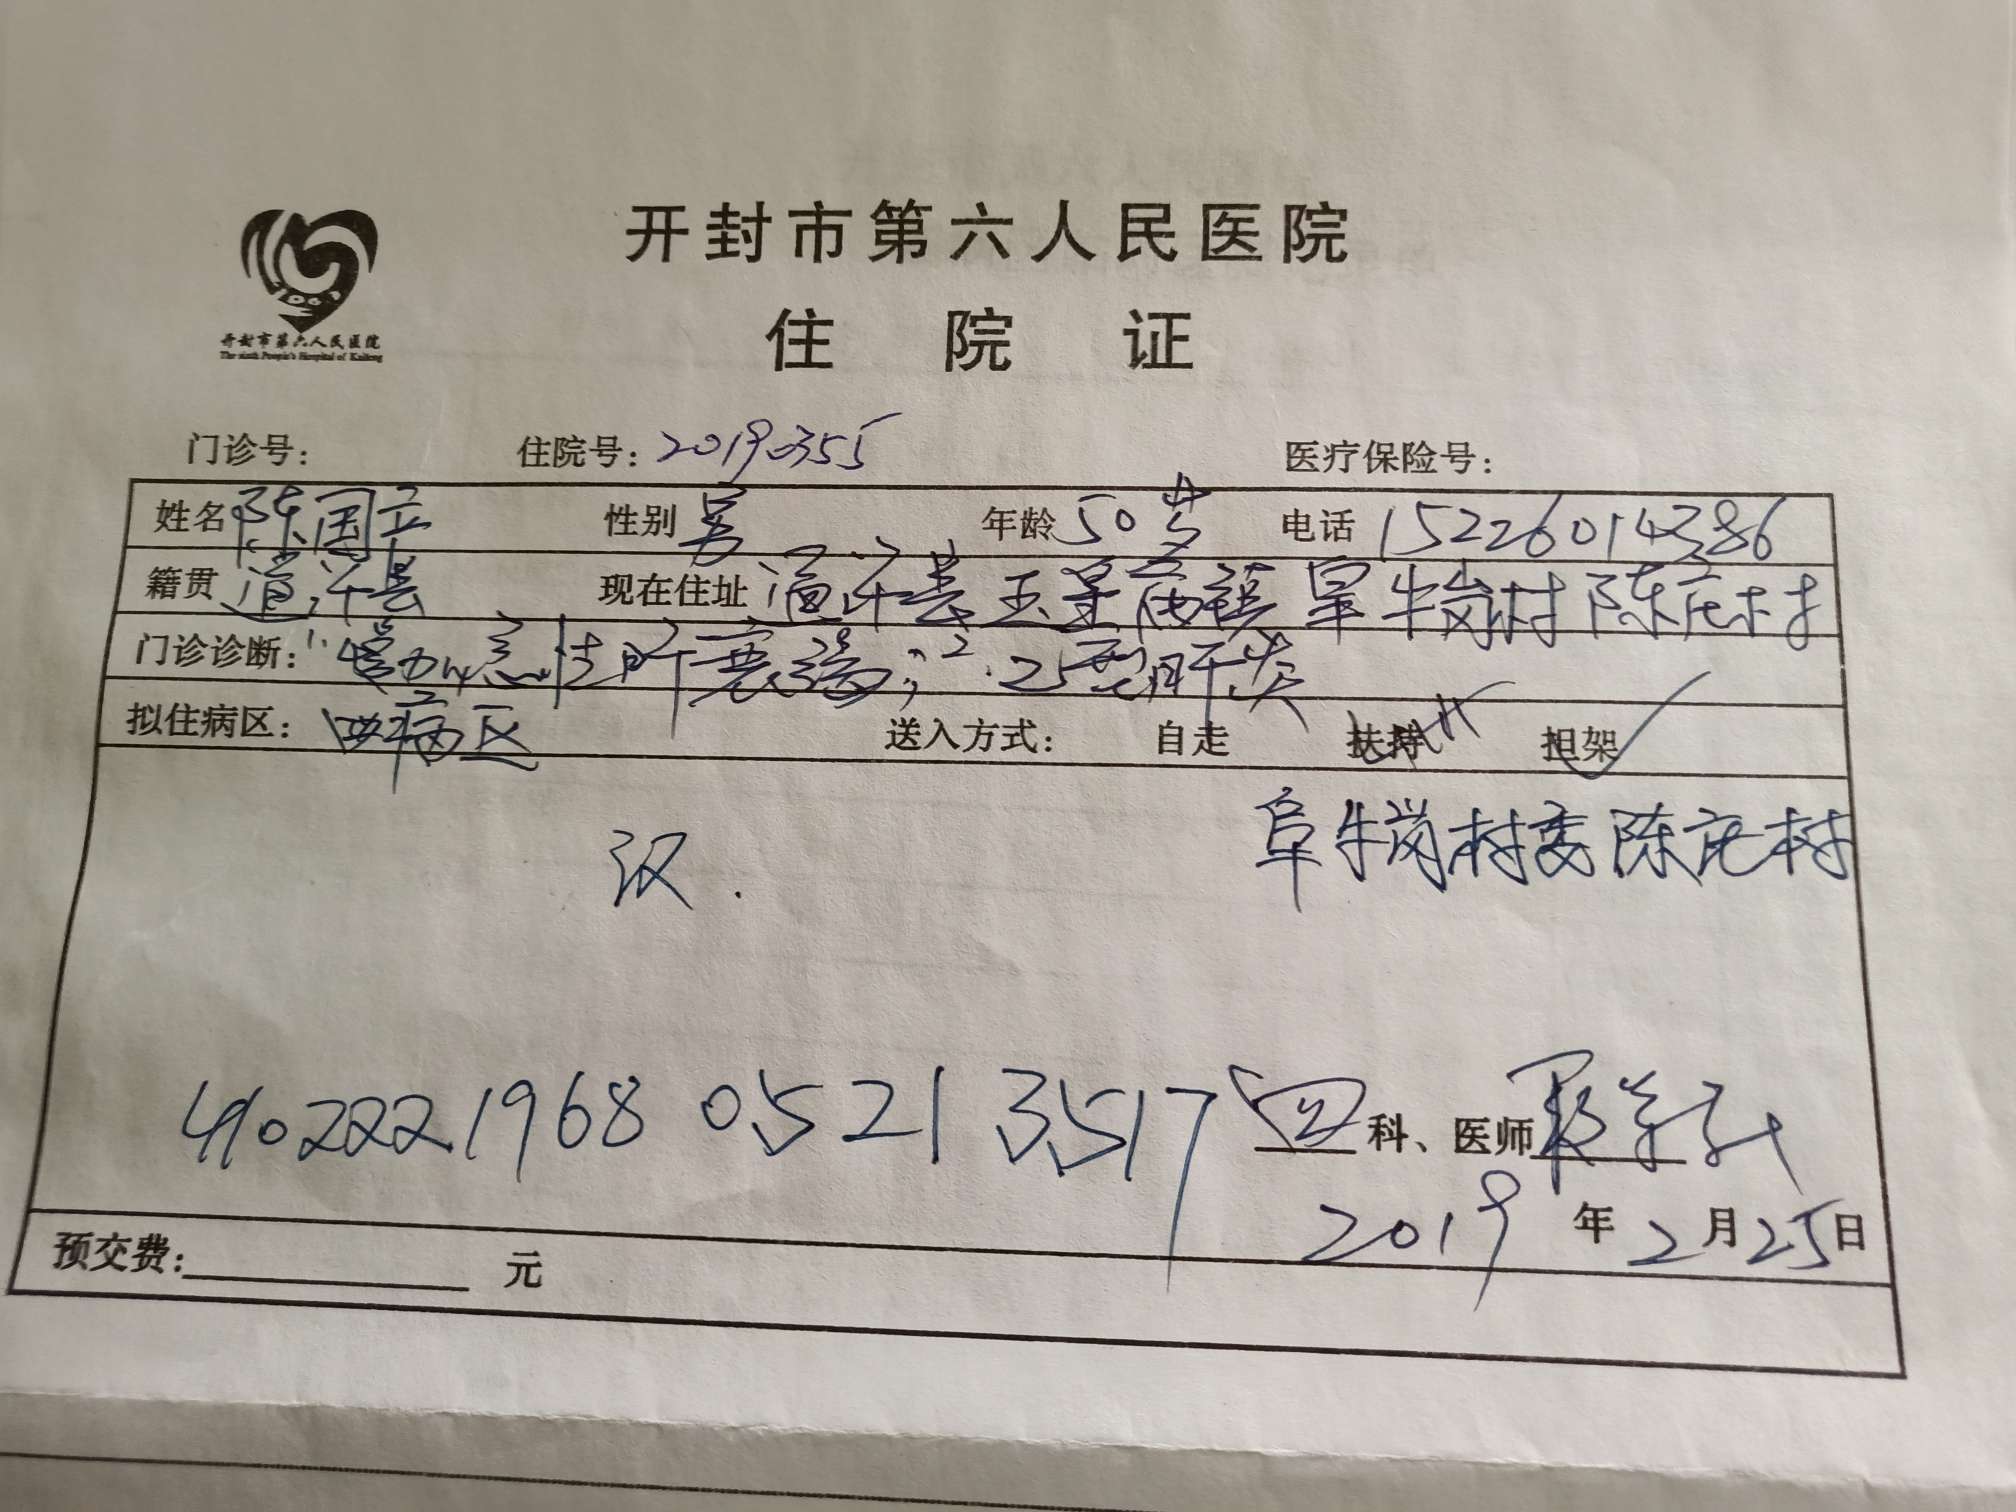 开封市第六人民医院
住院证
开封市第六人民医院
The sixth People's Hospital of Kaifeng
门诊号: 住院号: 20190355 医疗保险号:
姓名 陈国立 性别 男 年龄 50岁 电话 15226014386
籍贯 通许县 现在住址 通许县玉皇庙镇阜牛岗村陈庄村
门诊诊断: 1. 慢加急性肝衰竭; 2.
拟住病区: 四病区 送入方式: 自走 扶持 担架 ✓
阜牛岗村委陈庄村
汉.
410222 1968 0521 3517 四 科、医师
2019 年 2 月 25 日
预交费: 元